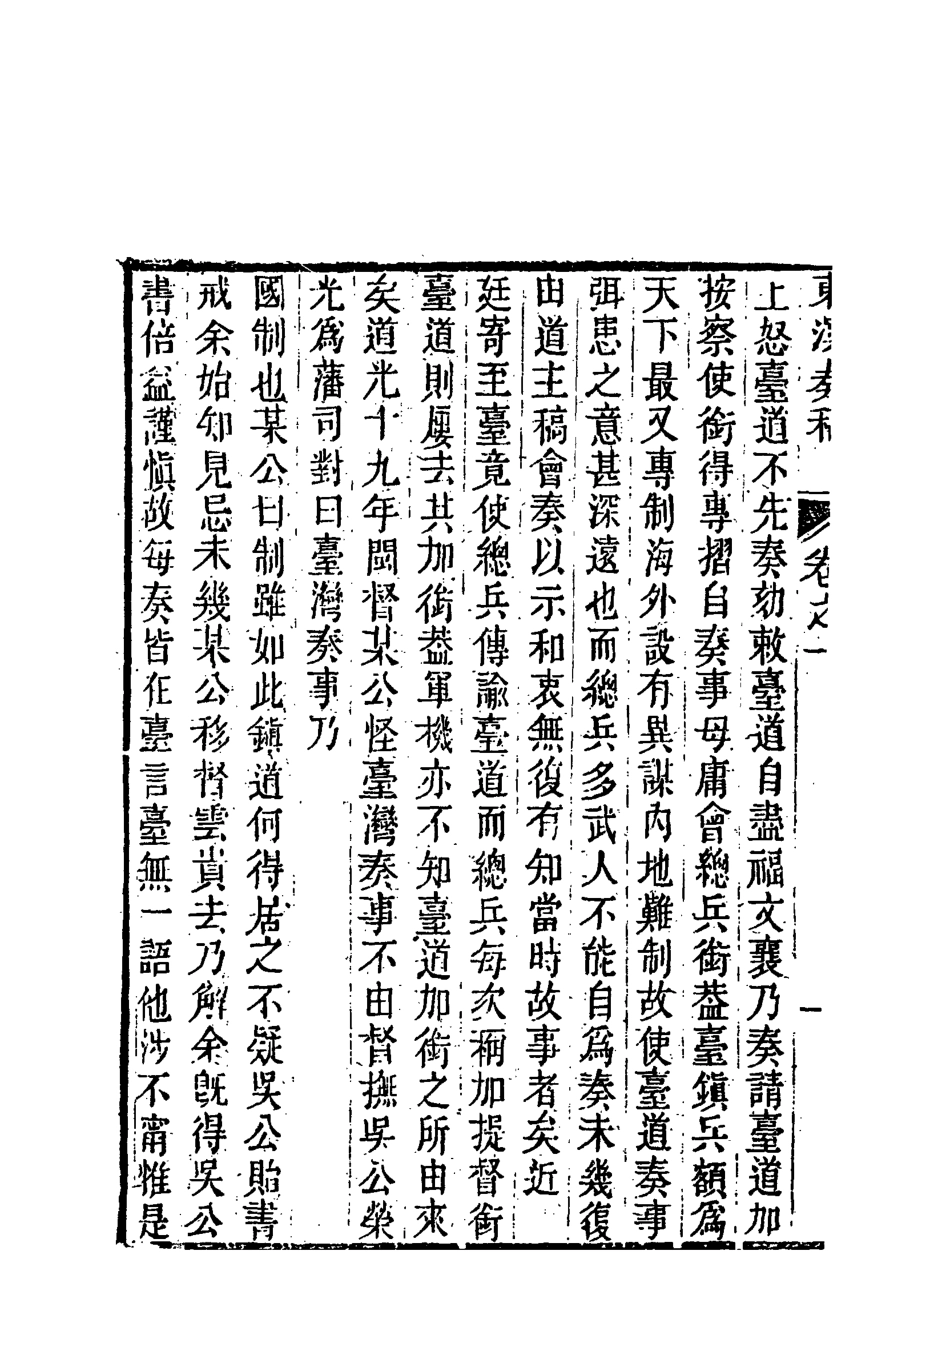 東溟奏稿 卷之一 一
上怒臺道不先奏劾敕臺道自盡福文襄乃奏請臺道加
按察使銜得專摺自奏事毋庸會總兵銜葢臺鎮兵額爲
天下最又專制海外設有異謀内地難制故使臺道奏事
弭患之意甚深遠也而總兵多武人不能自爲奏未幾復
由道主稿會奏以示和衷無復有知當時故事者矣近
廷寄至臺竟使總兵傳諭臺道而總兵每次稱加提督銜
臺道則屢去其加銜葢軍機亦不知臺道加銜之所由來
矣道光十九年閩督某公怪臺灣奏事不由督撫吳公榮
光爲藩司對曰臺灣奏事乃
國制也某公曰制雖如此鎮道何得居之不疑吳公貽書
戒余始知見忌未幾某公移督雲貴去乃解余旣得吳公
書倍益謹慎故每奏皆在臺言臺無一語他涉不甯惟是